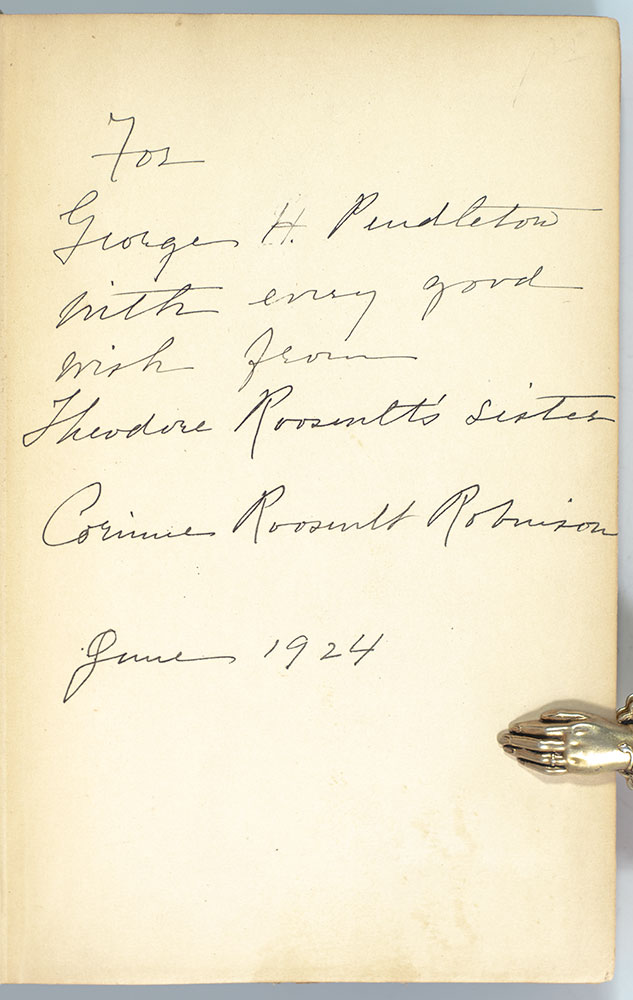 For
George H. Pendleton
with every good
wish from
Theodore Roosevelt's sister
Corinne Roosevelt Robinson
June 1924